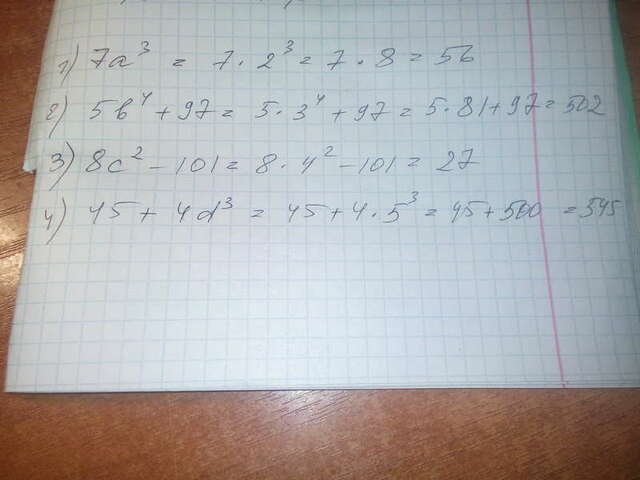 1) 7a³ = 7 · 2³ = 7 · 8 = 56
2) 5b⁴ + 97 = 5 · 3⁴ + 97 = 5 · 81 + 97 = 502
3) 8c² - 101 = 8 · 4² - 101 = 27
4) 45 + 4d³ = 45 + 4 · 5³ = 45 + 500 = 545